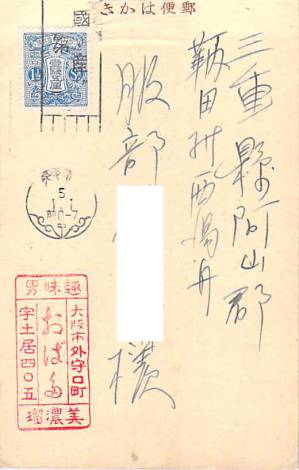 郵便はかき
三重縣阿山郡
鞆田村西湯舟
服部
様
趣味男
大阪市外守口町
おばた
字土居四〇五
美濃瑠
5
1.1
前0-7
國